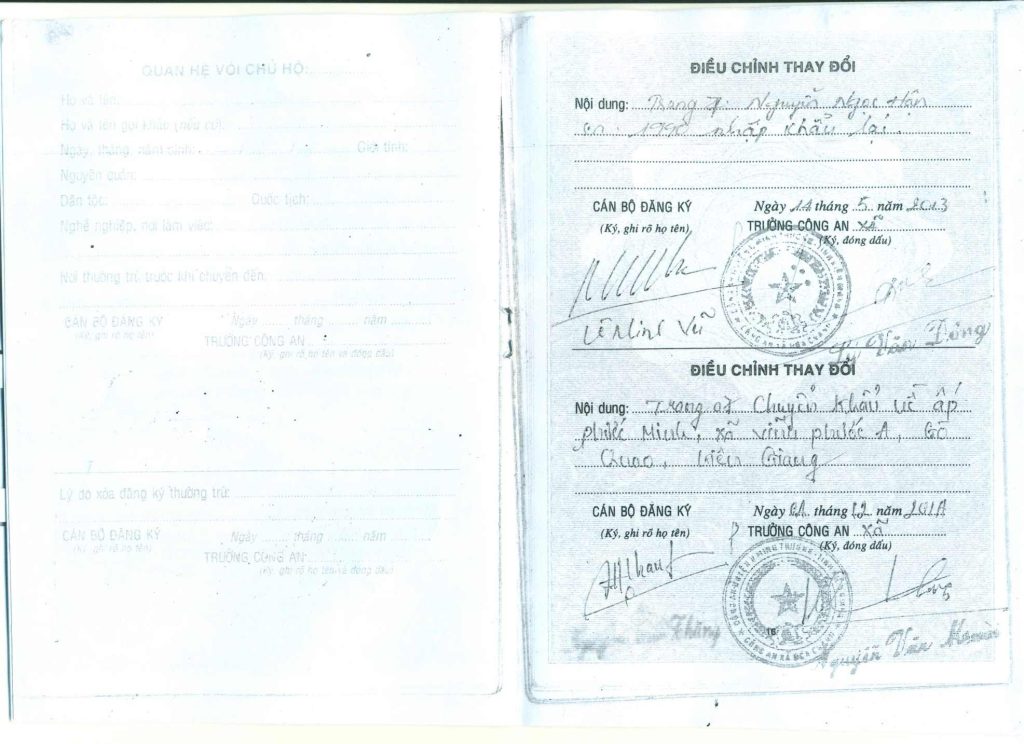 QUAN HỆ VỚI CHỦ HỘ:
Họ và tên:
Họ và tên gọi khác (nếu có):
Ngày, tháng, năm sinh: / / Giới tính:
Nguyên quán:
Dân tộc: Quốc tịch:
Nghề nghiệp, nơi làm việc:
Nơi thường trú trước khi chuyển đến:
CÁN BỘ ĐĂNG KÝ Ngày tháng năm
(Ký, ghi rõ họ tên) TRƯỞNG CÔNG AN
(Ký, ghi rõ họ tên và đóng dấu)
Lý do xóa đăng ký thường trú:
CÁN BỘ ĐĂNG KÝ Ngày tháng năm
(Ký, ghi rõ họ tên) TRƯỞNG CÔNG AN
(Ký, ghi rõ họ tên và đóng dấu)
ĐIỀU CHỈNH THAY ĐỔI
Nội dung: Nguyễn Ngọc Hận
1990 nhập khẩu lại.
CÁN BỘ ĐĂNG KÝ Ngày 14 tháng 5 năm 2013
(Ký, ghi rõ họ tên) TRƯỞNG CÔNG AN xã
(Ký, đóng dấu)
Vũ
Văn
ĐIỀU CHỈNH THAY ĐỔI
Nội dung: Chuyển Khẩu về ấp
phước Minh, xã vĩnh phước A, Gò
Quao, Kiên Giang
CÁN BỘ ĐĂNG KÝ Ngày tháng 12 năm
(Ký, ghi rõ họ tên) TRƯỞNG CÔNG AN xã
(Ký, đóng dấu)
Nguyễn Văn